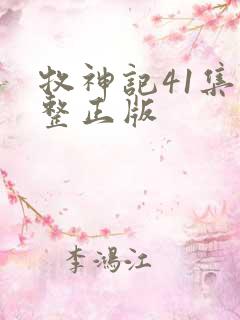 牧神记41集
整正版
李鸿江